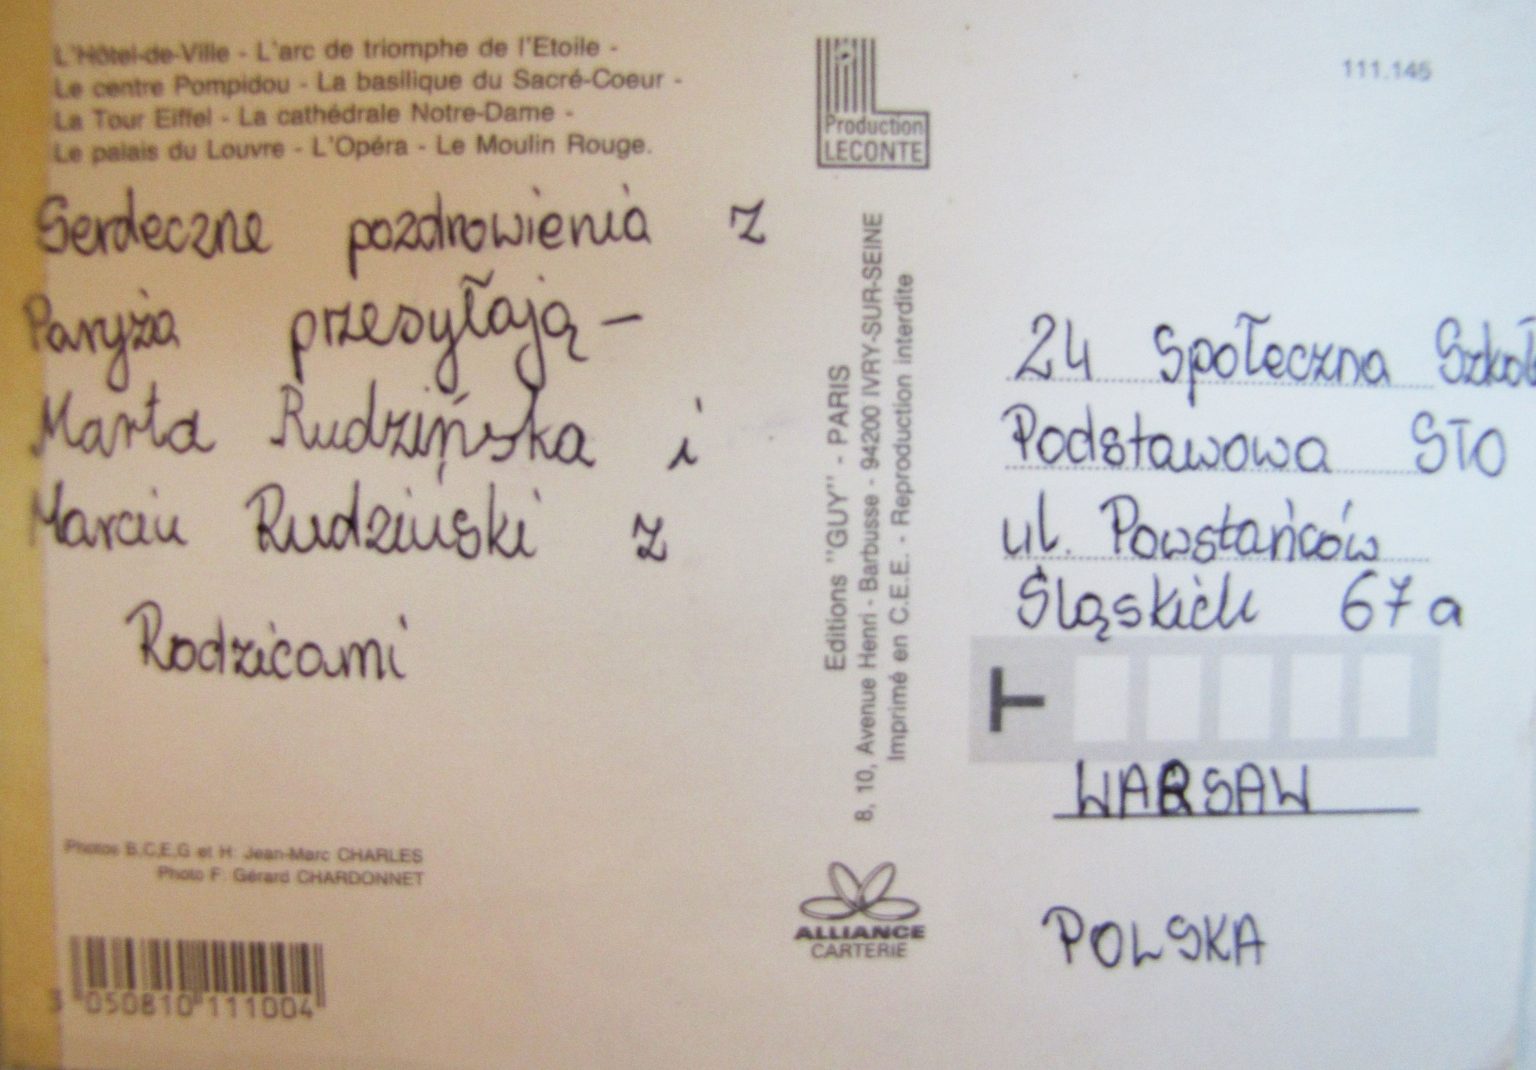 L'Hôtel-de-Ville - L'arc de triomphe de l'Etoile -
Le centre Pompidou - La basilique du Sacré-Coeur -
La Tour Eiffel - La cathédrale Notre-Dame -
Le palais du Louvre - L'Opéra - Le Moulin Rouge.
Serdeczne pozdrowienia z
Paryża przesyłają -
Marta Rudzińska i
Marcin Rudziński z
Rodzicami
Photos B.C.E.G et H: Jean-Marc CHARLES
Photo F: Gérard CHARDONNET
3 050810 111004
Production
LECONTE
Editions "GUY" - PARIS
8, 10, Avenue Henri - Barbusse - 94200 IVRY-SUR-SEINE
Imprimé en C.E.E. - Reproduction interdite
ALLIANCE
CARTERIE
111.145
24 Społeczna Szkoł
Podstawowa STO
ul. Powstańców
Śląskich 67 a
T
WARSAW
POLSKA